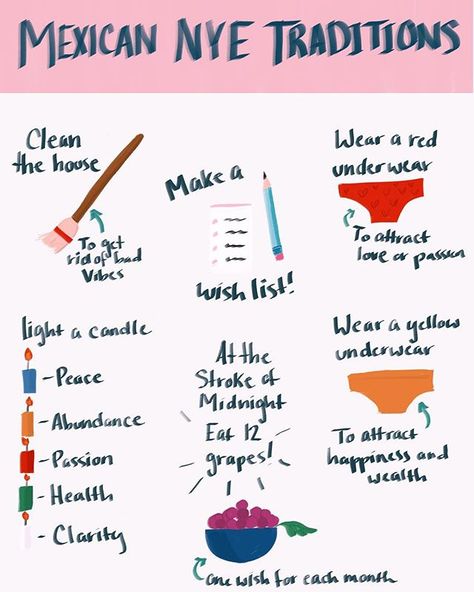 MEXICAN NYE TRADITIONS
Clean
the house
To get
rid of bad
Vibes
Make a
wish list!
Wear a red
underwear
To attract
love or passion
Light a candle
-Peace
-Abundance
-Passion
-Health
-Clarity
At the
Stroke of
Midnight
Eat 12
grapes!
one wish for each month
Wear a yellow
underwear
To attract
happiness and
wealth